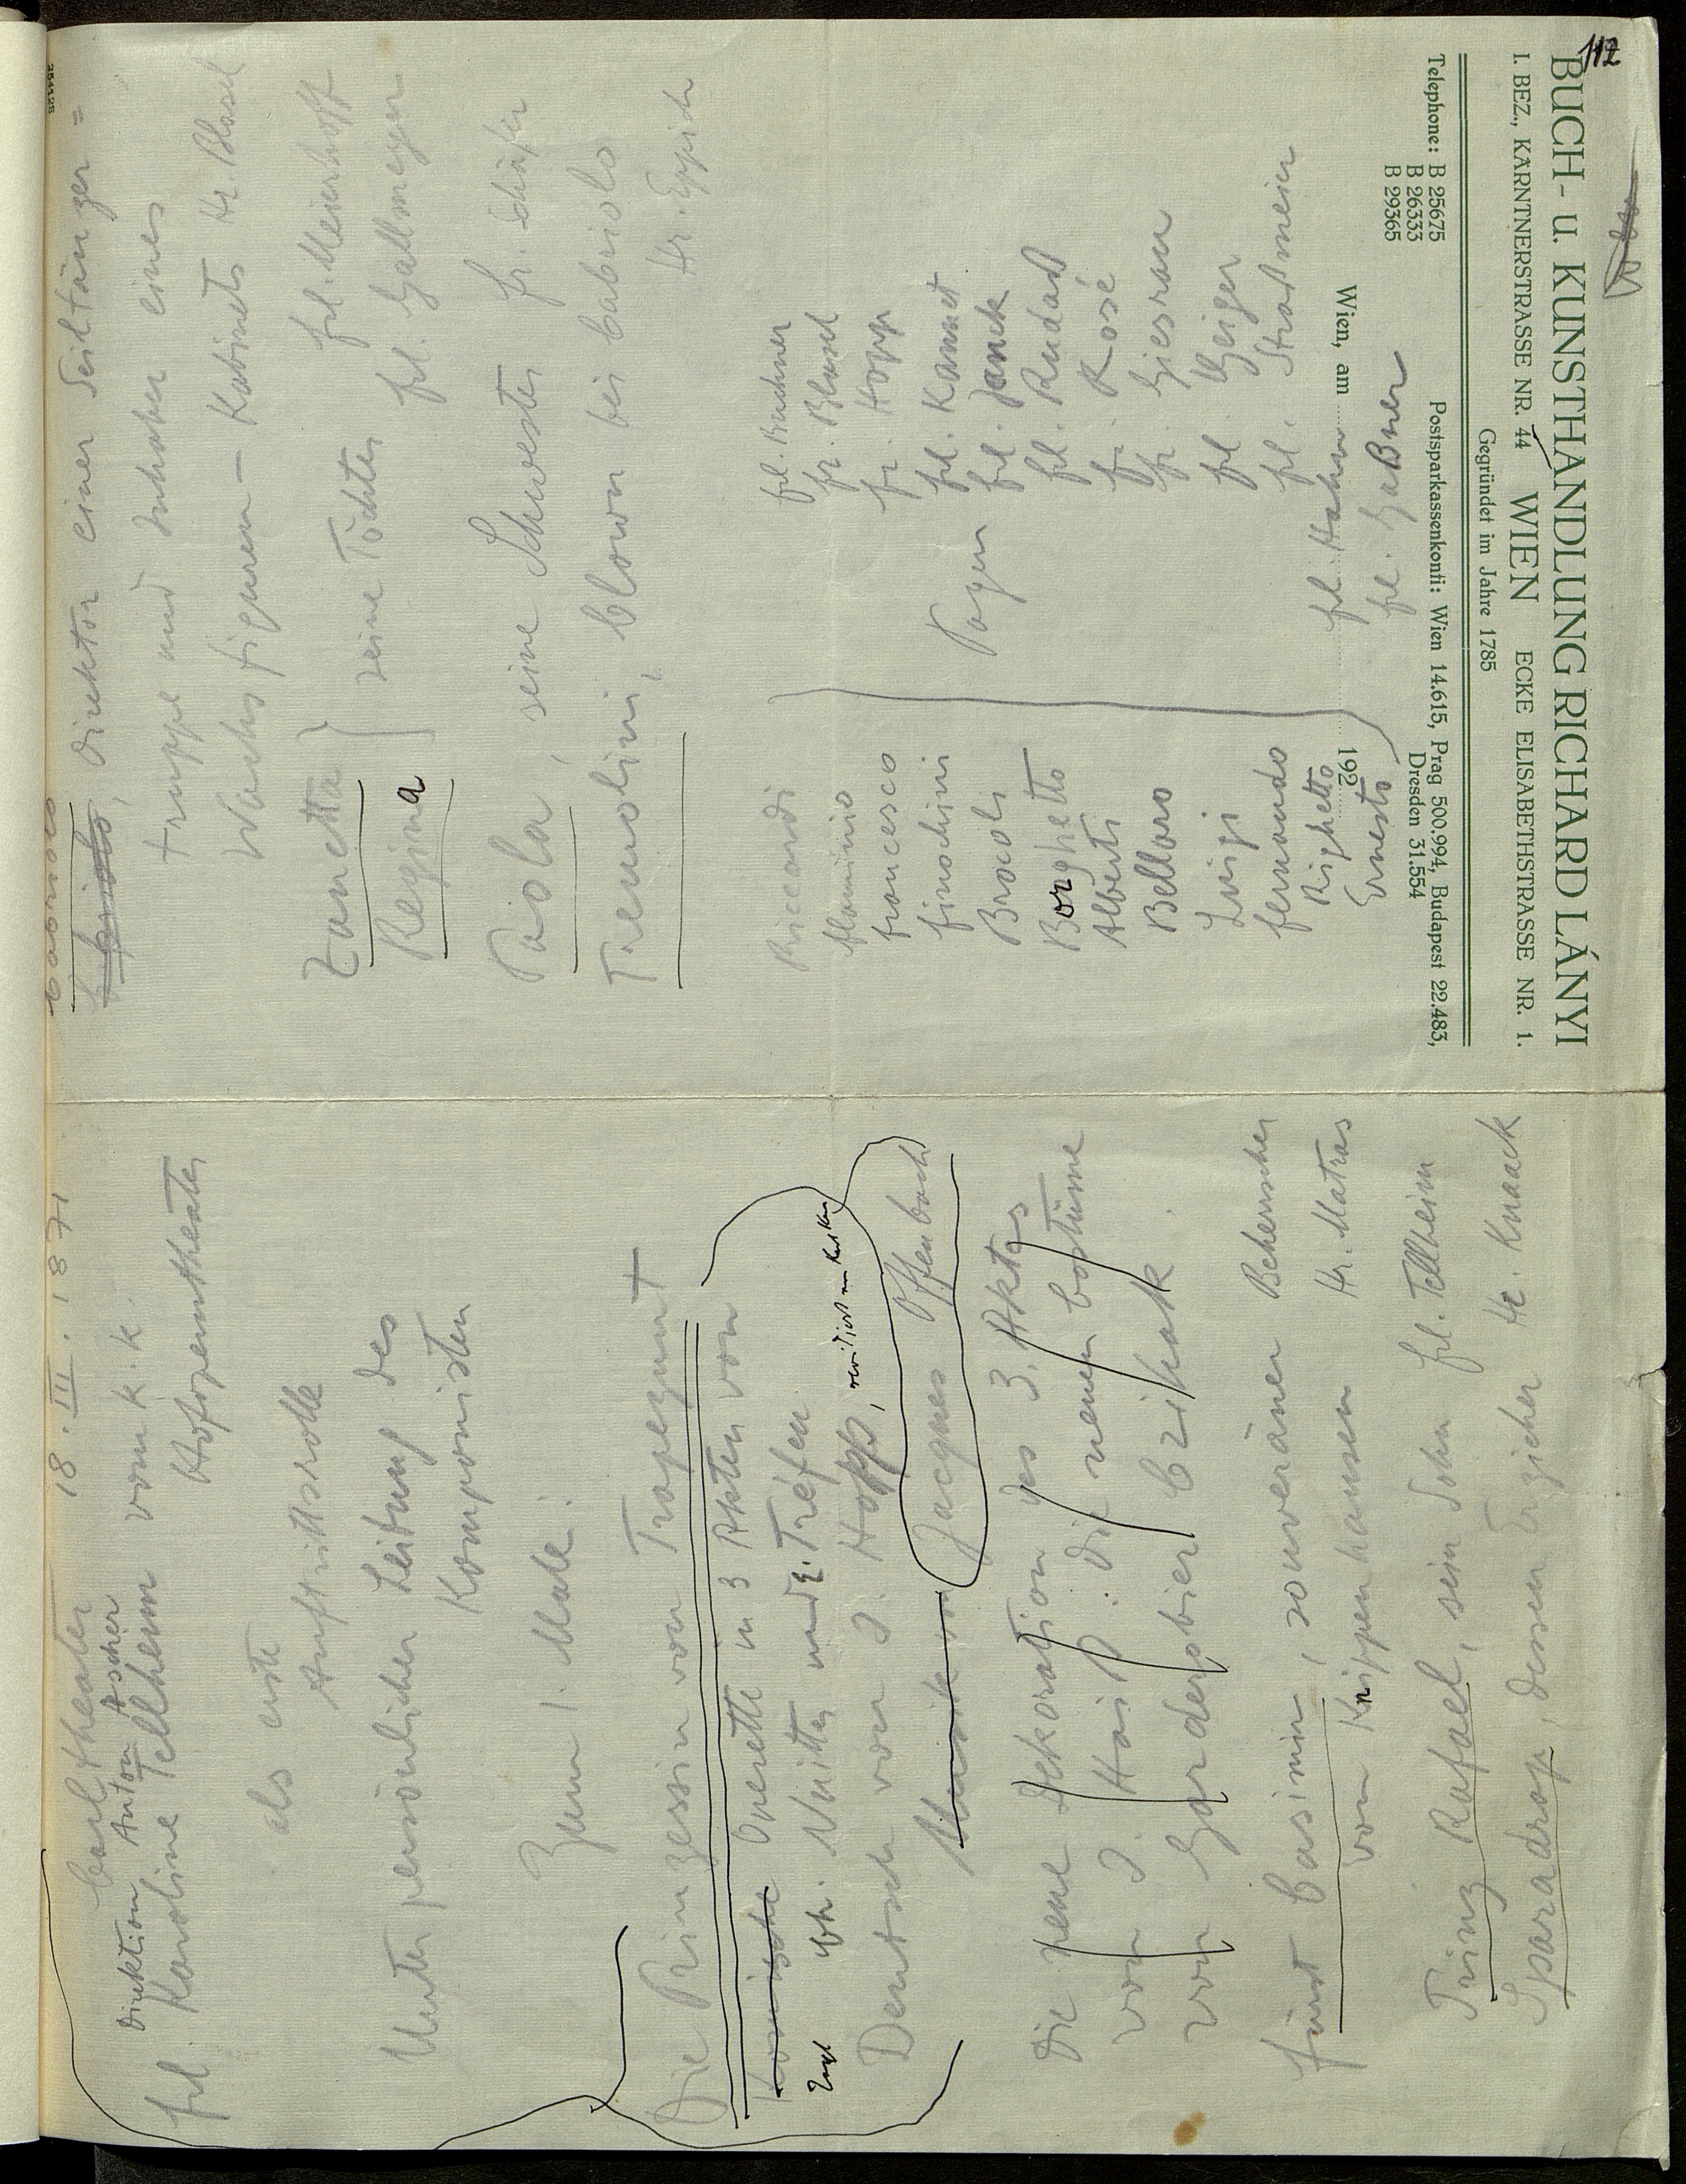 112
BUCH- u. KUNSTHANDLUNG RICHARD LÁNYI
I. BEZ., KÄRNTNERSTRASSE NR. 44 WIEN ECKE ELISABETHSTRASSE NR. 1.
Gegründet im Jahre 1785
Telephone: B 25675
B 26333
B 29365
Postsparkassenkonti: Wien 14.615, Prag 500.994, Budapest 22.483,
Dresden 31.554
Wien, am 192
Carltheater 18. III. 1871
Direktion Anton Ascher
Frl. Karoline Tellheim vom k. k.
Hofoperntheater
als erste
Auftrittsrolle
Unter persönlicher Leitung des
Komponisten
Zum 1. Male:
Die Prinzessin von Trapezunt
Komische Operette in 3 Akten von
und Tréfeu
Deutsch von J. Hopp,
Musik von Jacques Offenbach
Die neue Dekoration des 3. Aktes
von J. Hoit: die neuen Costüme
von Garderobier Czihak.
Fürst Casimir, souveräner Beherrscher
von Knippenhausen Hr. Matras
Prinz Rafael, sein Sohn Frl. Tellheim
Sparadrap, dessen Erzieher Hr. Knaack
Cabriolo
Cabriolo, Direktor einer Seiltänzer=
truppe und Inhaber eines
Wachsfiguren-Kabinets Hr. Blasel
Zanetta } seine Töchter Frl. Meierhoff
Regina } Frl. Gallmeyer
Paola, seine Schwester Fr. Schäfer
Tremolini, Clown bei Cabriolo
Hr. Eppich
Riccardi Frl. Buchner
Flaminio Fr. Blasel
Francesco Fr. Hopp
Finochini Frl. Kannet
Brocoli Pagen Frl. Janek
Borghetto Frl. Rudas
Alberti Fr. Rosé
Bellaro Fr. Giesrau
Luigi Frl. Geiger
Fernando Frl. Straßmeier
Righetto Frl. Hahn
Ernesto Frl. Gaßner
254128